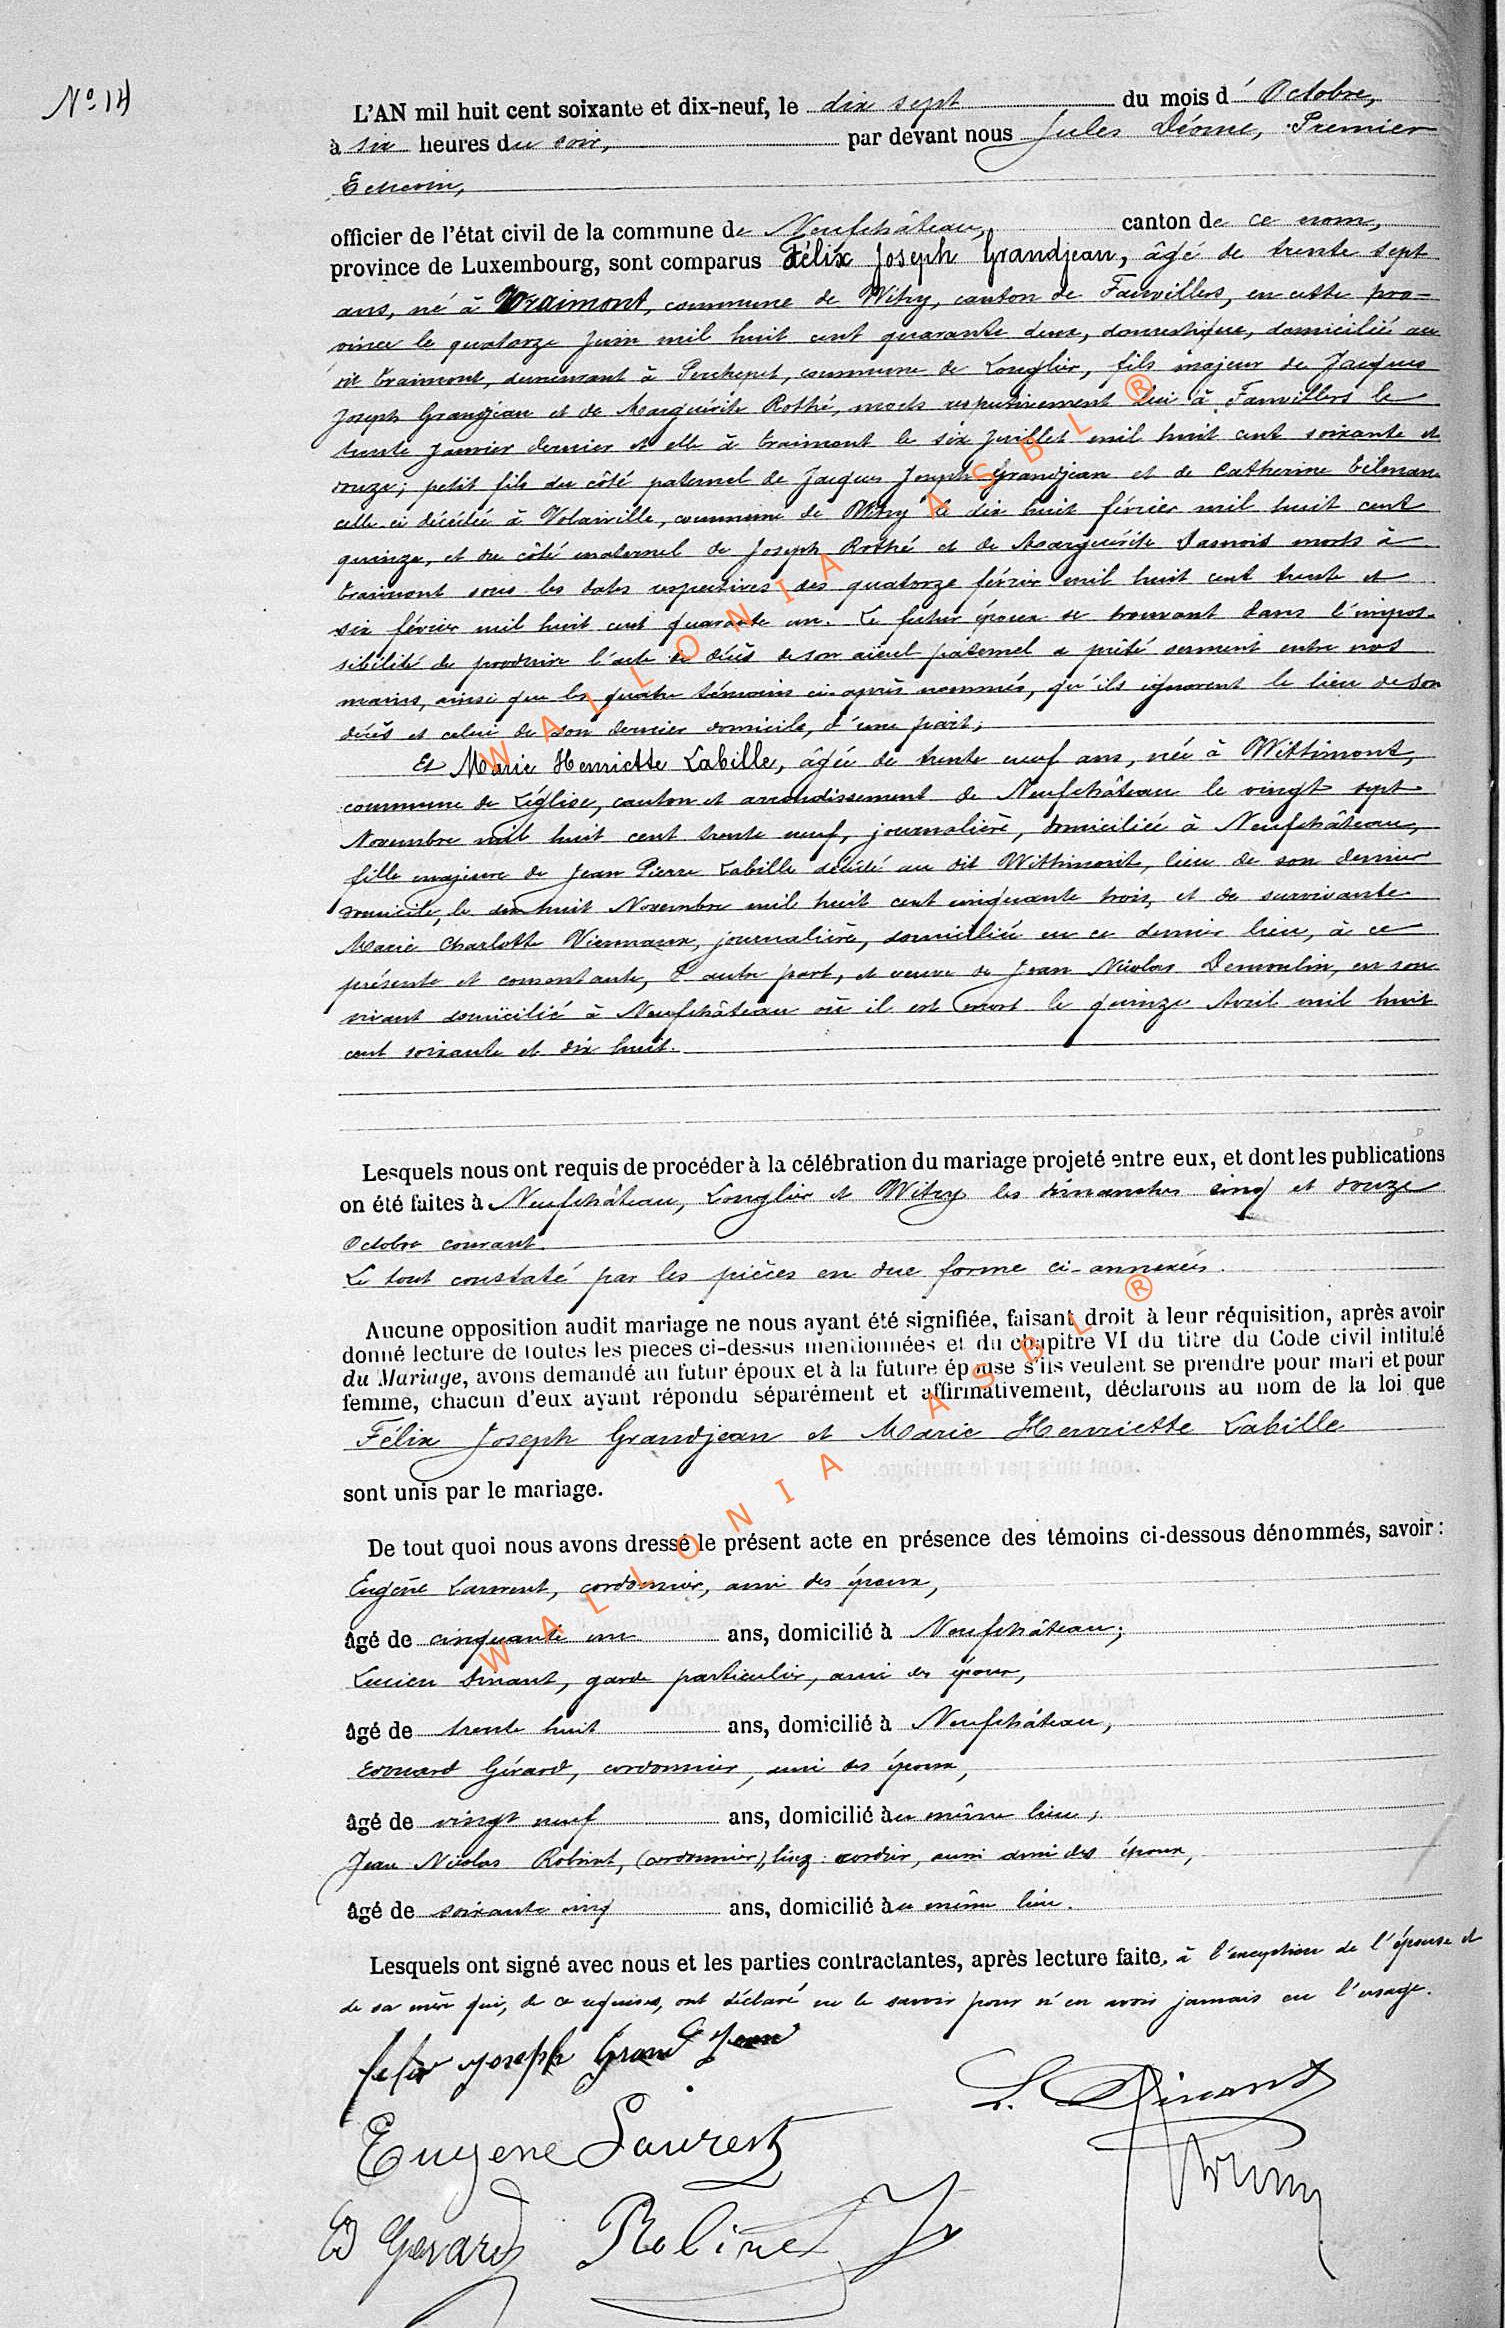 N° 14
L'AN mil huit cent soixante et dix-neuf, le dix sept du mois d'Octobre,
à six heures du soir, par devant nous Jules Déome, Premier
Echevin,
officier de l'état civil de la commune de Neufchâteau, canton de ce nom,
province de Luxembourg, sont comparus Félix Joseph Grandjean, âgé de trente sept
ans, né à Traimont, commune de Witry, canton de Fauvillers, en cette pro=
vince le quatorze Juin mil huit cent quarante deux, domestique, domicilié au
dit Traimont, demeurant à Percheput, commune de Longlier, fils majeur de Jacques
Joseph Grandjean et de Marguérite Rothé, morts respectivement lui à Fauvillers le
trente Janvier dernier et elle à Traimont le six Juillet mil huit cent soixante et
onze; petit fils du côté paternel de Jacques Joseph Grandjean et de Catherine Tilman
celle-ci décédée à Volaiville, commune de Witry le dix huit février mil huit cent
quinze, et du côté maternel de Joseph Rothé et de Marguérite morts à
Traimont sous les dates respectives des quatorze février mil huit cent trente et
six février mil huit cent quarante un. Le futur époux se trouvant dans l'impos-
sibilité de produire l'acte de décès de son aïeul paternel a prêté serment entre nos
mains, ainsi que les quatre témoins ci-après nommés, qu'ils ignorent le lieu de son
décès et celui de son dernier domicile, d'une part;
Et Marie Henriette Labille, âgée de trente neuf ans, née à Wittimont,
commune de Léglise, canton et arrondissement de Neufchâteau le vingt sept
Novembre mil huit cent trente neuf, journalière, domiciliée à Neufchâteau,
fille majeure de Jean Pierre Labille décédé au dit Wittimont, lieu de son dernier
domicile, le dix huit Novembre mil huit cent cinquante trois, et de survivante
Marie Charlotte journalière, domiciliée en ce dernier lieu, à ce
présente et consentante, d'autre part, et veuve de Jean Nicolas Demoulin, en son
vivant domicilié à Neufchâteau où il est mort le quinze Avril mil huit
cent soixante et dix huit.
Lesquels nous ont requis de procéder à la célébration du mariage projeté entre eux, et dont les publications
on été faites à Neufchâteau, Longlier et Witry les dimanches cinq et douze
Octobre courant.
Le tout constaté par les pièces en due forme ci-annexées.
Aucune opposition audit mariage ne nous ayant été signifiée, faisant droit à leur réquisition, après avoir
donné lecture de toutes les pièces ci-dessus mentionnées et du chapitre VI du titre du Code civil intitulé
du Mariage, avons demandé au futur époux et à la future épouse s'ils veulent se prendre pour mari et pour
femme, chacun d'eux ayant répondu séparément et affirmativement, déclarons au nom de la loi que
Félix Joseph Grandjean et Marie Henriette Labille
sont unis par le mariage.
De tout quoi nous avons dressé le présent acte en présence des témoins ci-dessous dénommés, savoir :
Eugène Laurent, cordonnier, ami des époux,
âgé de cinquante un ans, domicilié à Neufchâteau;
Lucien Dinant, garde particulier, ami des époux,
âgé de trente huit ans, domicilié à Neufchâteau,
Edouard Gérard, cordonnier, ami des époux,
âgé de vingt neuf ans, domicilié au même lieu,
Jean Nicolas Robinet, (cordonnier), lisez cordier, aussi ami des époux,
âgé de soixante cinq ans, domicilié au même lieu.
Lesquels ont signé avec nous et les parties contractantes, après lecture faite, à l'exception de l'épouse et
de sa mère qui, de ce requises, ont déclaré ne le savoir pour n'en avoir jamais eu l'usage.
felix joseph Grand Jean
L. Dinant
Eugene Laurent
Ed Gerard
WALLONIA ASBL ®
WALLONIA ASBL ®